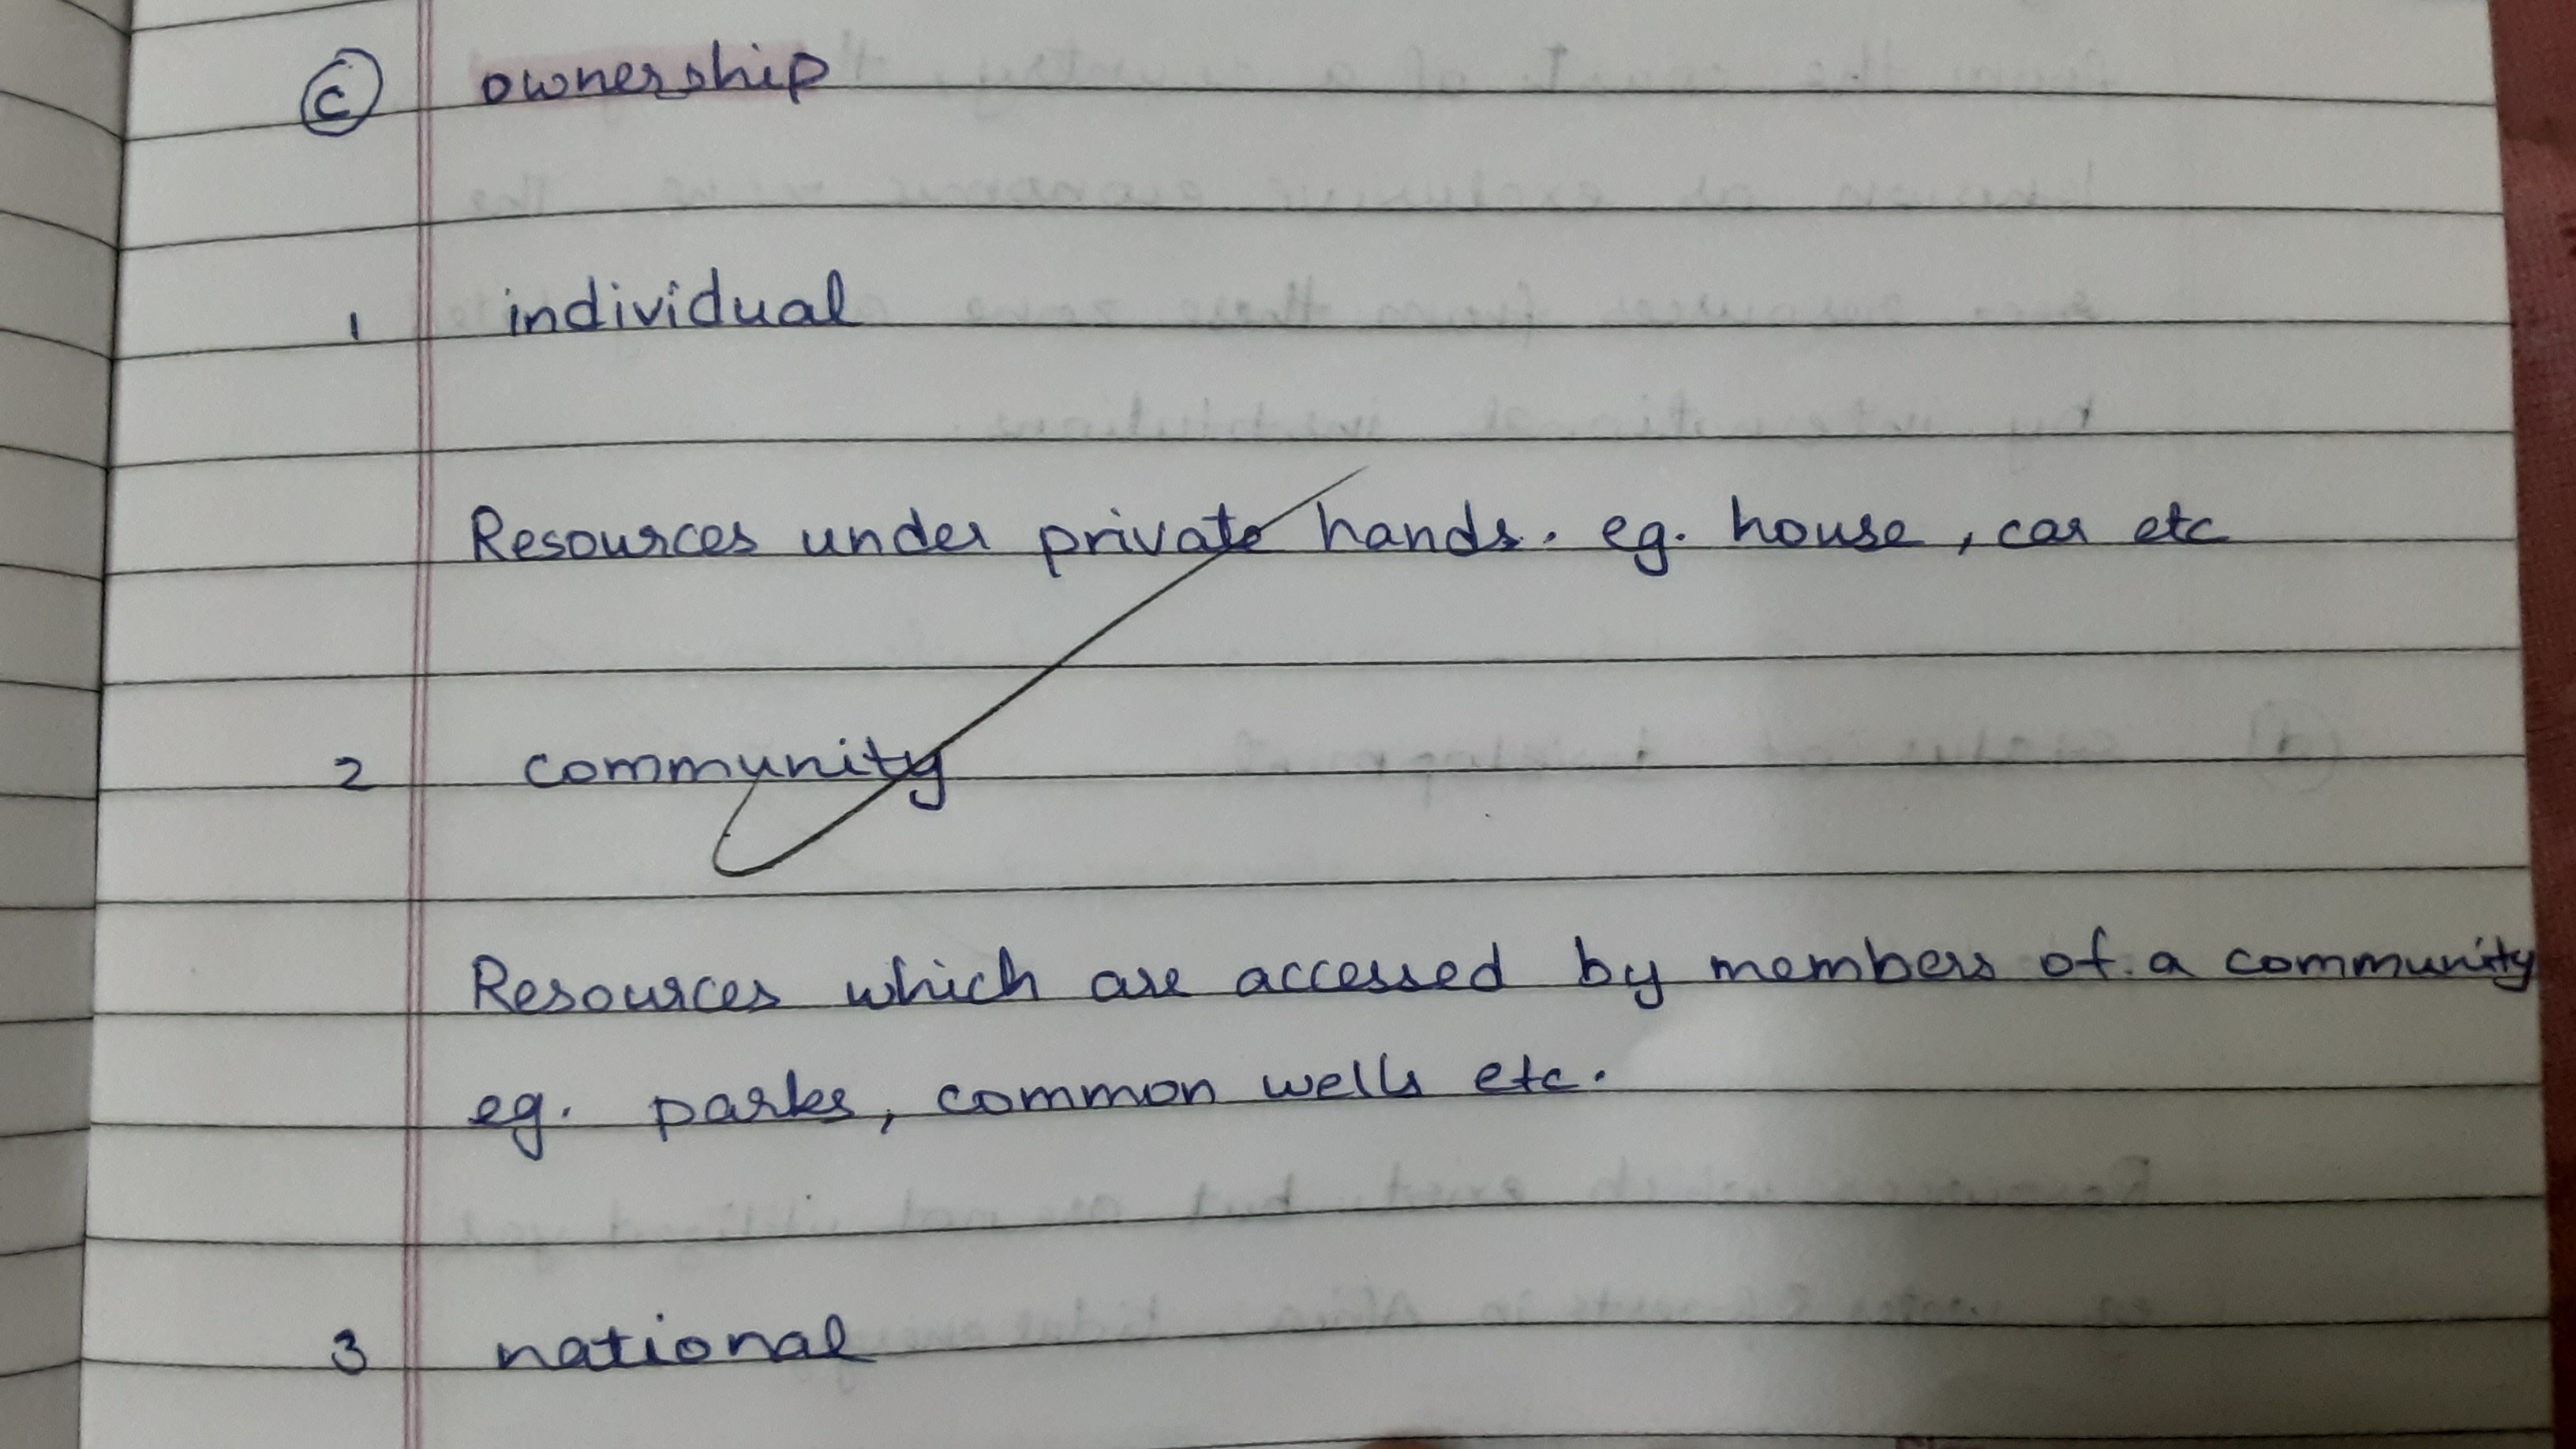 c ownership
1 individual
Resources under private hands. eg. house, car etc
2 community
Resources which are accessed by members of a community
eg. parks, common wells etc.
3 national